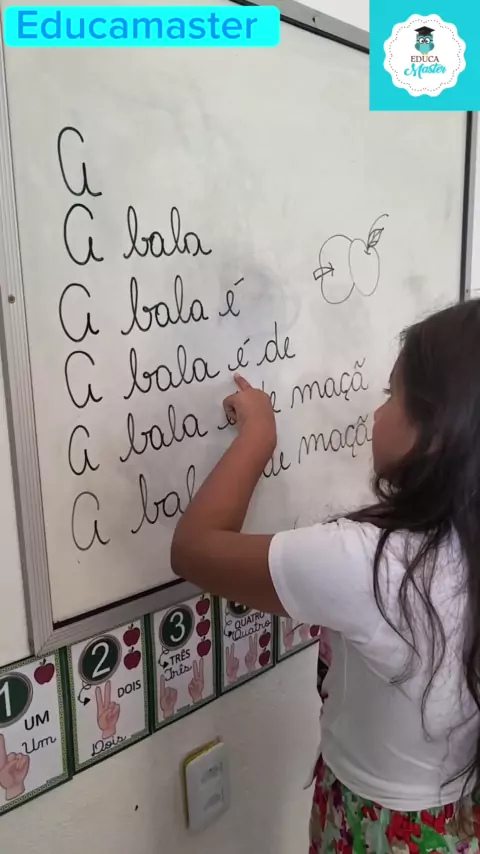 Educamaster
EDUCA
Master
A
A bala
A bala é
A bala é de
A bala de maçã
A de maçã
1
UM
Um
2
DOIS
Dois
3
TRÊS
Três
QUATRO
Quatro